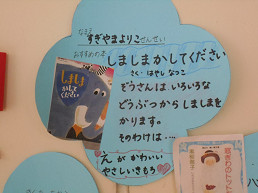 なまえ
すぎやまよりこせんせい
おすすめの本
しましまかしてください
さく・はやし なつこ
ぞうさんは いろいろな
どうぶつから しましまを
かります。
そのわけは…
えが かわいい
やさしいきもち
しましま
かしてください